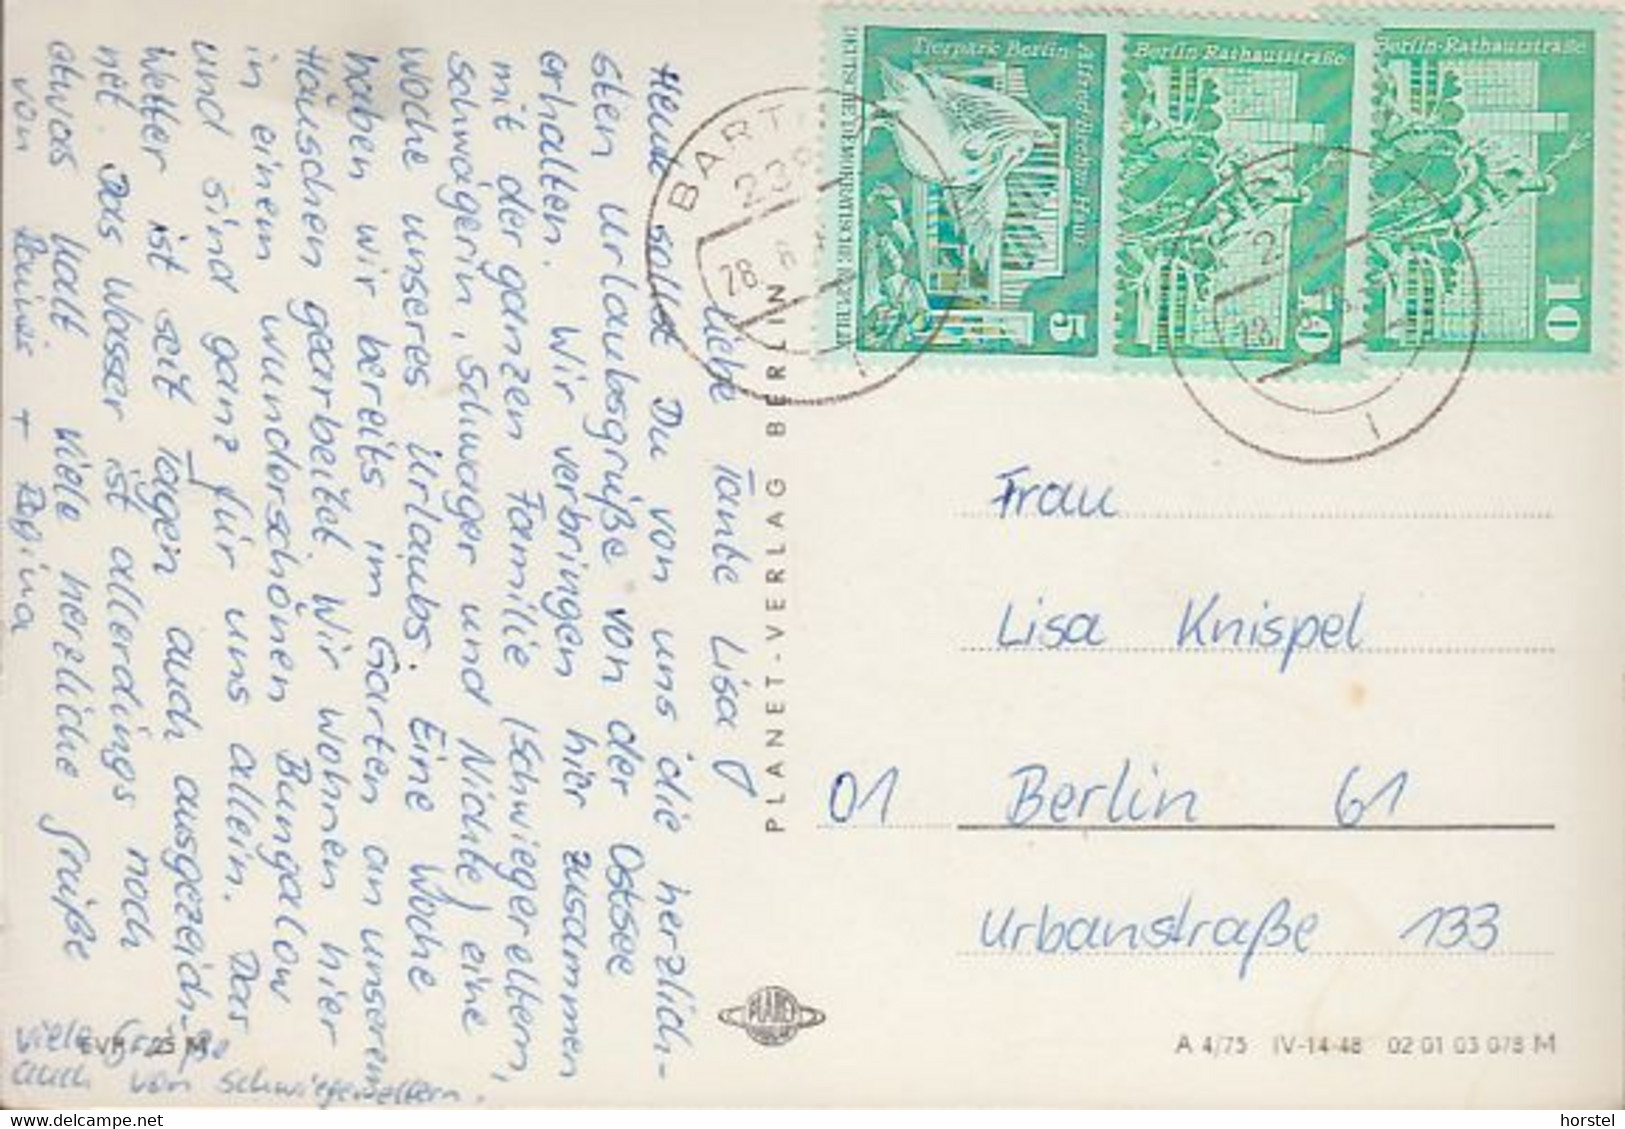 Liebe Tante Lisa!
Heute sollst Du von uns die herzlich-
sten Urlaubsgrüße von der Ostsee
erhalten. Wir verbringen hier zusammen
mit der ganzen Familie (Schwiegereltern,
Schwägerin, Schwager und Nichte) eine
Woche unseres Urlaubs. Eine Woche
haben wir bereits im Garten an unserem
Häuschen gearbeitet. Wir wohnen hier
in einem wunderschönen Bungalow
und sind ganz für uns allein. Das
Wetter ist seit Tagen auch ausgezeich-
net. Das Wasser ist allerdings noch
etwas kalt. Viele herzliche Grüße
von + Regina
Viele Grüße
auch von Schwiegereltern.
EVP 25 M
PLANET-VERLAG BERLIN
PLANET
DEUTSCHE DEMOKRATISCHE REPUBLIK
Tierpark Berlin
Alfred-Brehm-Haus
5
Berlin-Rathausstraße
10
Berlin-Rathausstraße
10
BARTH
238
Frau
Lisa Knispel
01 Berlin 61
Urbanstraße 133
A 4/75 IV-14-48 02 01 03 078 M
horstel